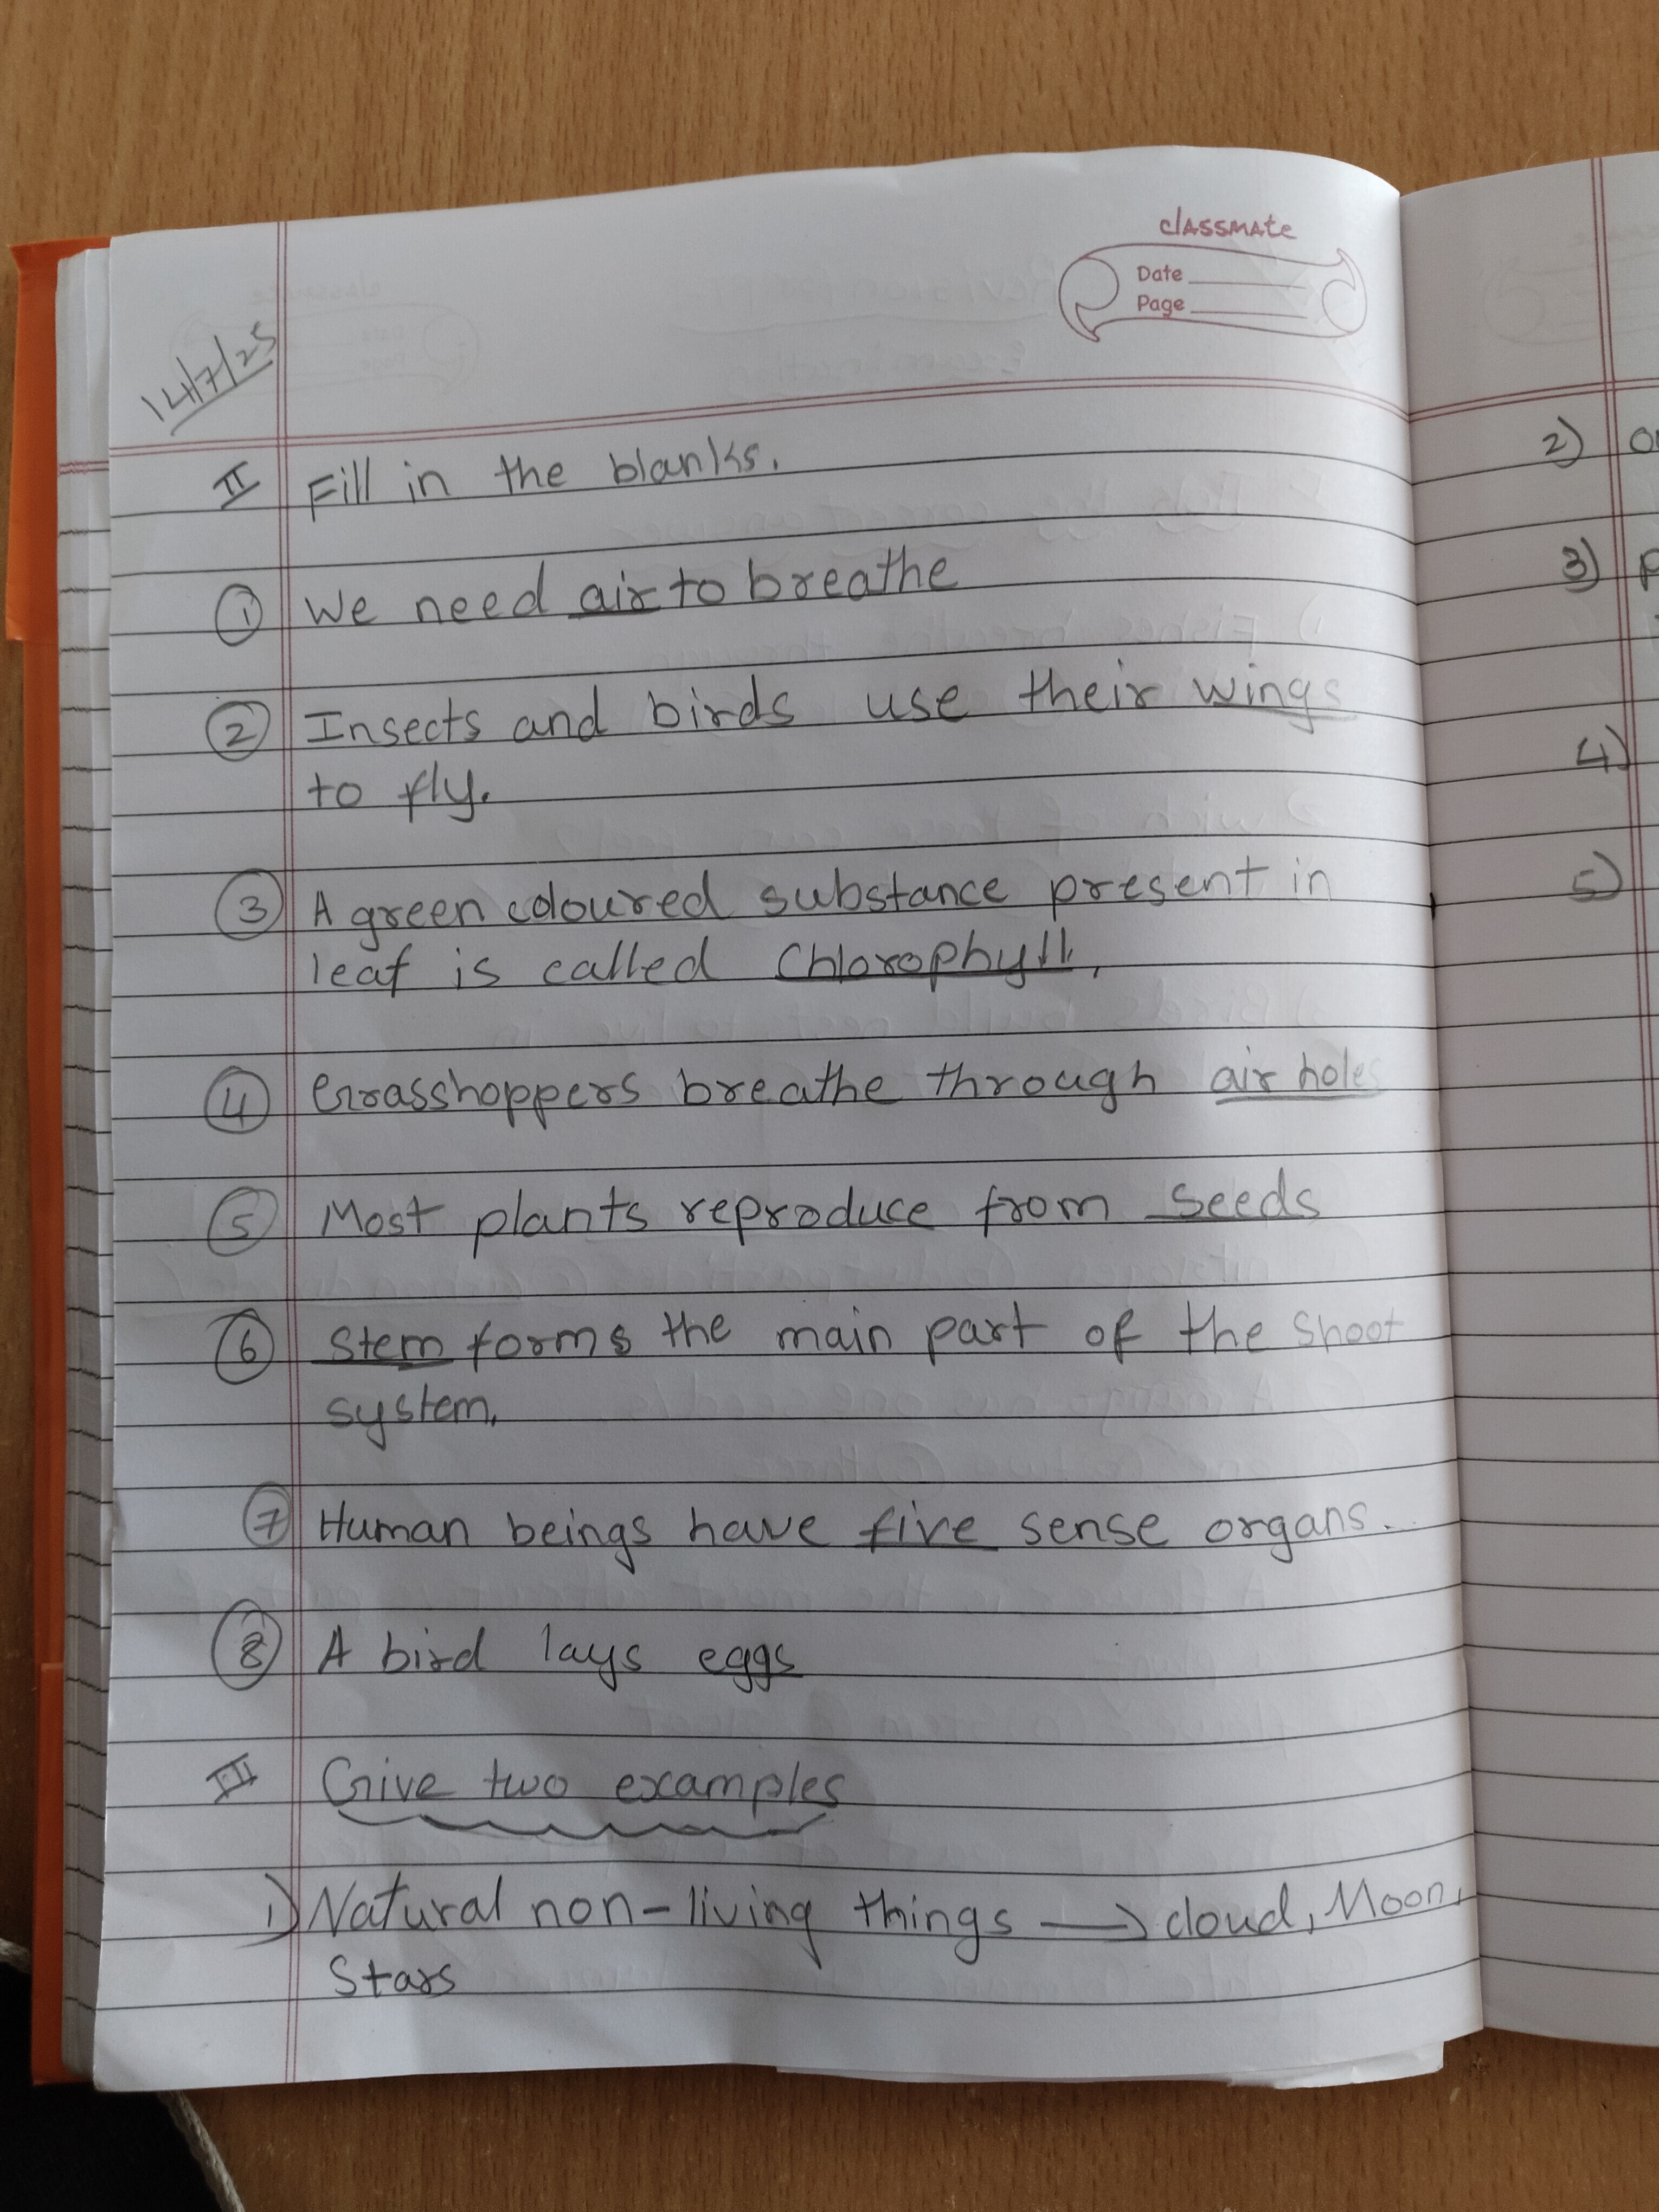 classmate
Date
Page
14/7/25
II Fill in the blanks.
① We need air to breathe
② Insects and birds use their wings
to fly.
③ A green coloured substance present in
leaf is called Chlorophyll,
④ Grasshoppers breathe through air holes
⑤ Most plants reproduce from Seeds
⑥ Stem forms the main part of the Shoot
system.
⑦ Human beings have five sense organs.
⑧ A bird lays eggs
III Give two examples
1) Natural non-living things → cloud, Moon,
Stars
2)
3)
4)
5)